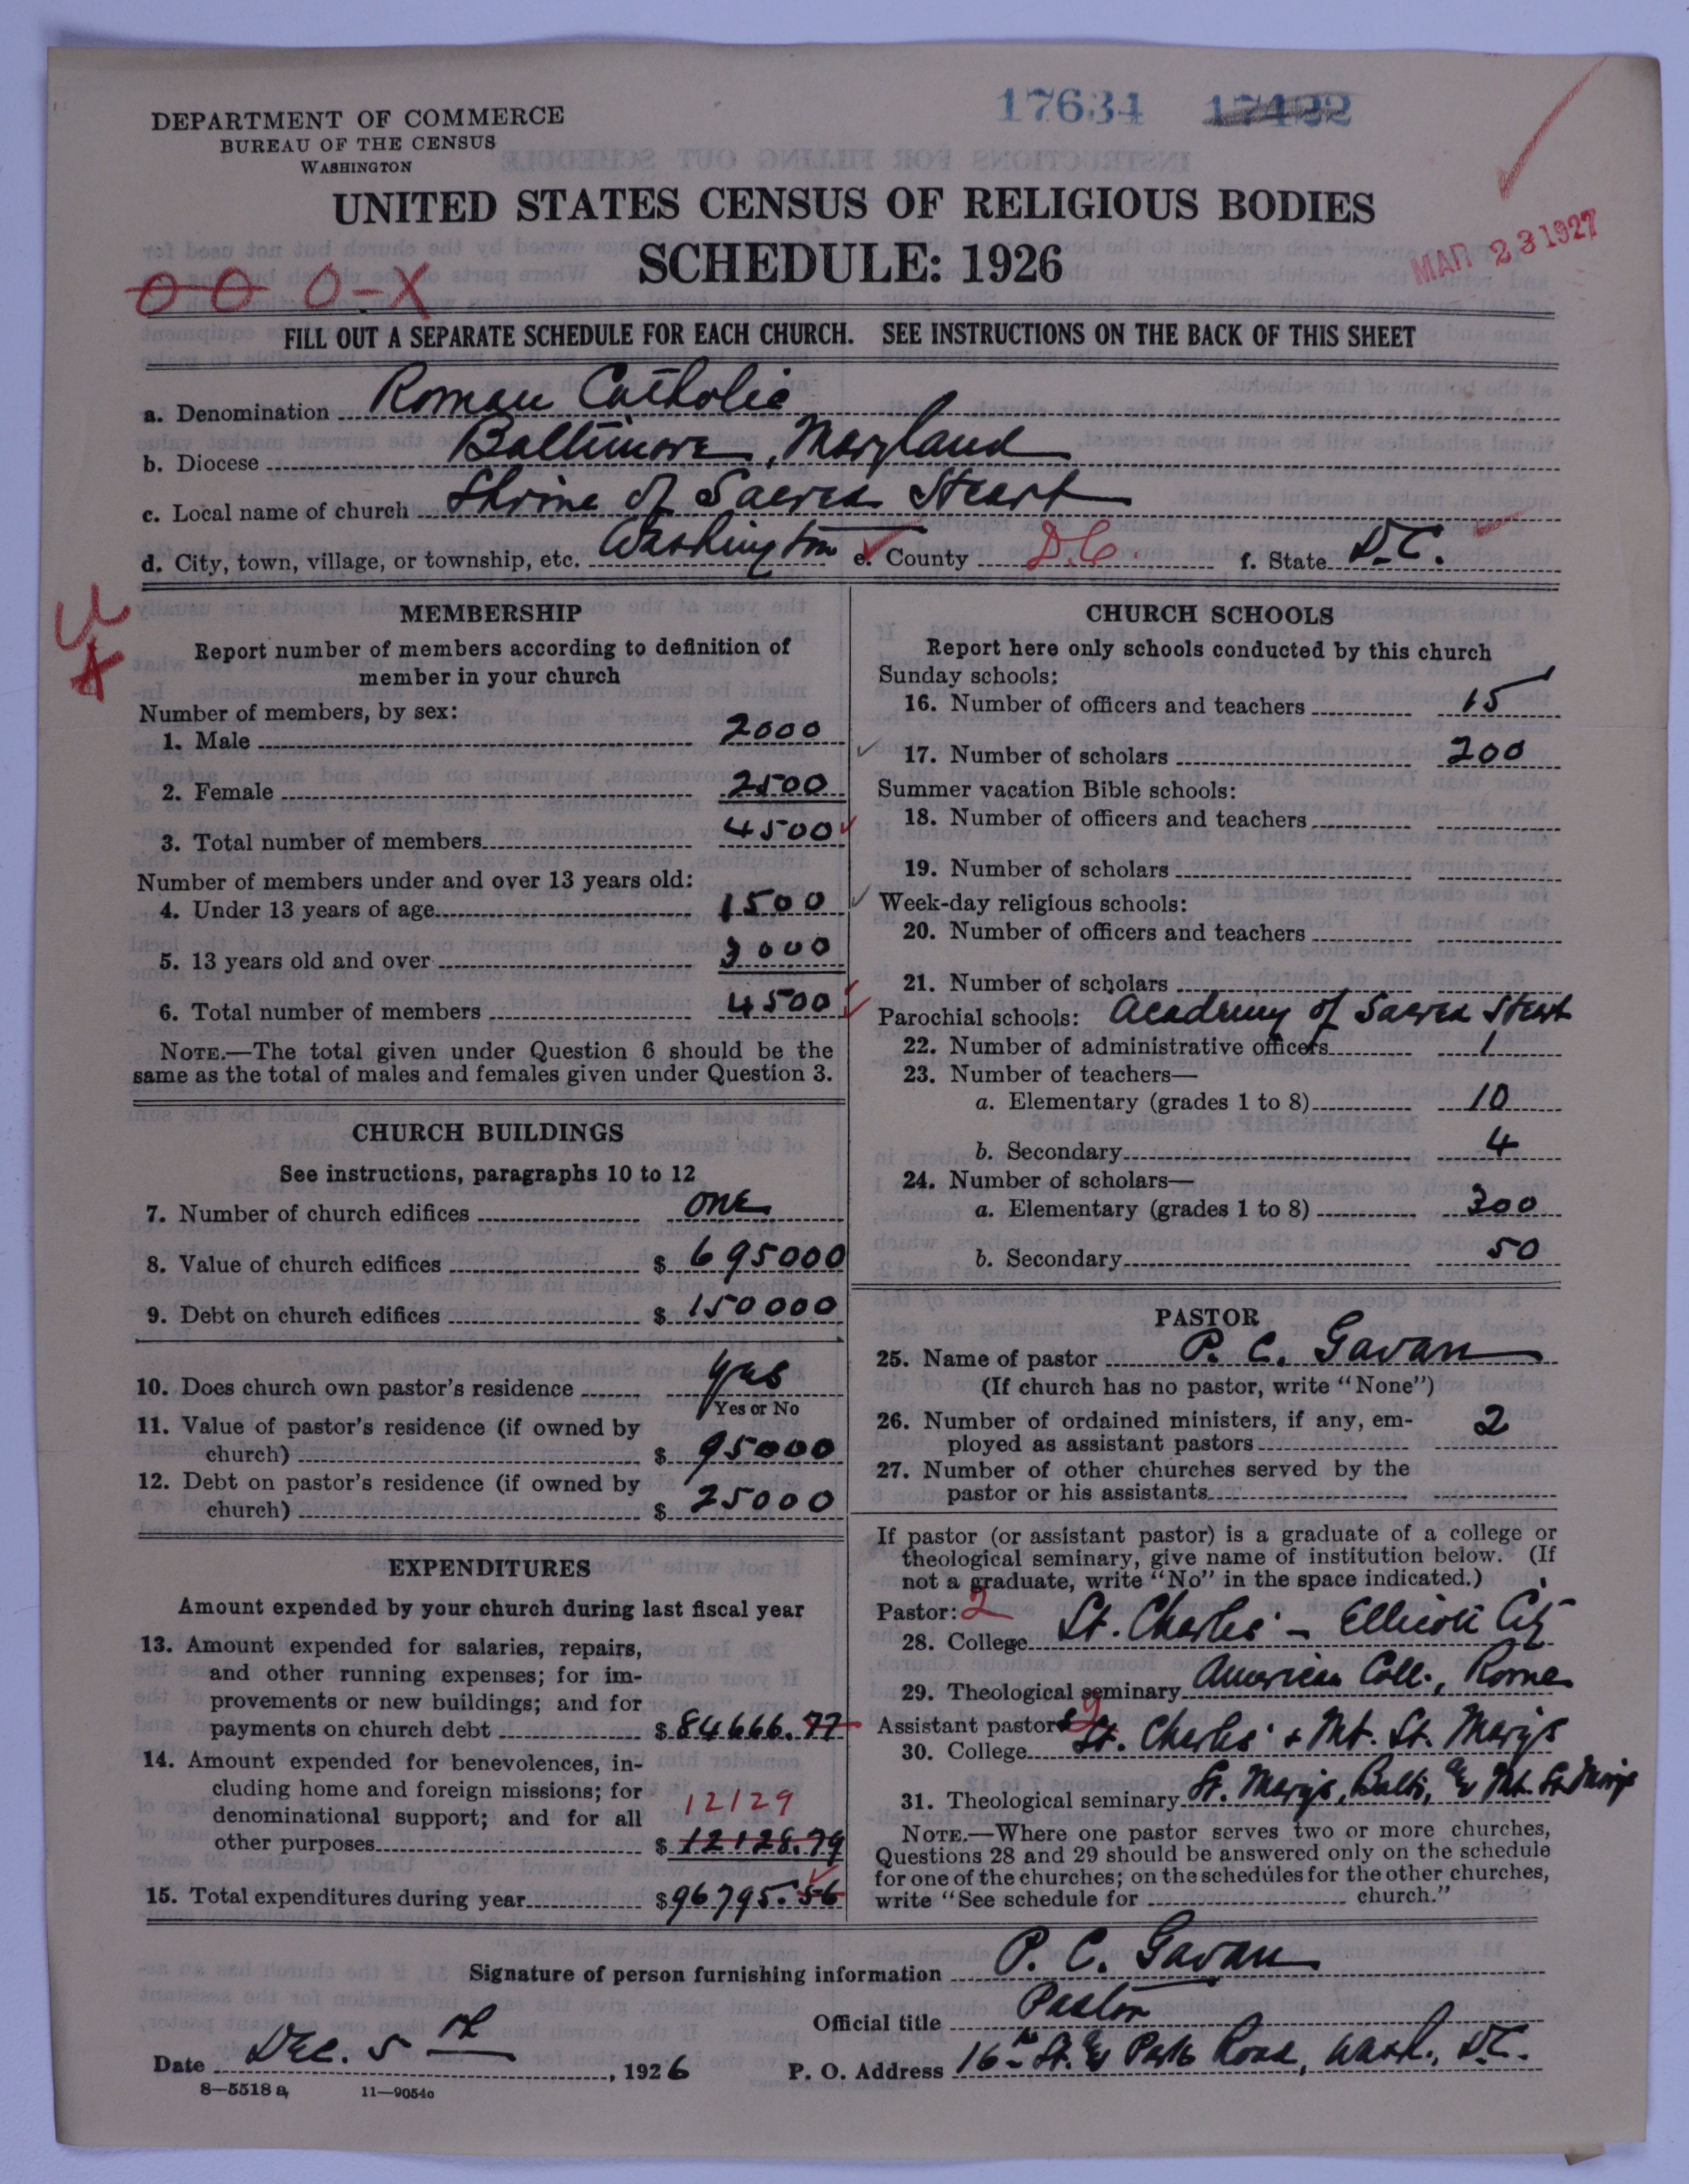 17634 17422
DEPARTMENT OF COMMERCE
BUREAU OF THE CENSUS
WASHINGTON
UNITED STATES CENSUS OF RELIGIOUS BODIES
SCHEDULE: 1926
MAR 23 1927
0 0 0-X
FILL OUT A SEPARATE SCHEDULE FOR EACH CHURCH. SEE INSTRUCTIONS ON THE BACK OF THIS SHEET
a. Denomination Roman Catholic
b. Diocese Baltimore, Maryland
c. Local name of church Shrine of Sacred Heart
d. City, town, village, or township, etc. Washington e. County D.C. f. State D.C.
MEMBERSHIP
Report number of members according to definition of
member in your church
Number of members, by sex:
1. Male 2000
2. Female 2500
3. Total number of members 4500
Number of members under and over 13 years old:
4. Under 13 years of age 1500
5. 13 years old and over 3000
6. Total number of members 4500
NOTE.—The total given under Question 6 should be the
same as the total of males and females given under Question 3.
CHURCH BUILDINGS
See instructions, paragraphs 10 to 12
7. Number of church edifices one
8. Value of church edifices $ 695000
9. Debt on church edifices $ 150000
10. Does church own pastor's residence yes
Yes or No
11. Value of pastor's residence (if owned by
church) $ 95000
12. Debt on pastor's residence (if owned by
church) $ 25000
EXPENDITURES
Amount expended by your church during last fiscal year
13. Amount expended for salaries, repairs,
and other running expenses; for im-
provements or new buildings; and for
payments on church debt $ 84666.77
14. Amount expended for benevolences, in-
cluding home and foreign missions; for
denominational support; and for all 12129
other purposes $ 12128.79
15. Total expenditures during year $ 96795.56
CHURCH SCHOOLS
Report here only schools conducted by this church
Sunday schools:
16. Number of officers and teachers 15
17. Number of scholars 200
Summer vacation Bible schools:
18. Number of officers and teachers
19. Number of scholars
Week-day religious schools:
20. Number of officers and teachers
21. Number of scholars
Parochial schools: Academy of Sacred Heart
22. Number of administrative officers 1
23. Number of teachers—
a. Elementary (grades 1 to 8) 10
b. Secondary 4
24. Number of scholars—
a. Elementary (grades 1 to 8) 300
b. Secondary 50
PASTOR
25. Name of pastor P. C. Gavan
(If church has no pastor, write "None")
26. Number of ordained ministers, if any, em-
ployed as assistant pastors 2
27. Number of other churches served by the
pastor or his assistants
If pastor (or assistant pastor) is a graduate of a college or
theological seminary, give name of institution below. (If
not a graduate, write "No" in the space indicated.)
Pastor: 2
28. College St. Charles' — Ellicott City
29. Theological seminary American Coll., Rome
Assistant pastor: 2
30. College St. Charles' + Mt. St. Marys
31. Theological seminary St. Marys, Balto, & Mt. St. Marys
NOTE.—Where one pastor serves two or more churches,
Questions 28 and 29 should be answered only on the schedule
for one of the churches; on the schedules for the other churches,
write "See schedule for church."
Signature of person furnishing information P. C. Gavan
Official title Pastor
Date Dec. 5th, 1926 P. O. Address 16th St. & Park Road, Wash., D.C.
8—5518a 11—9054a